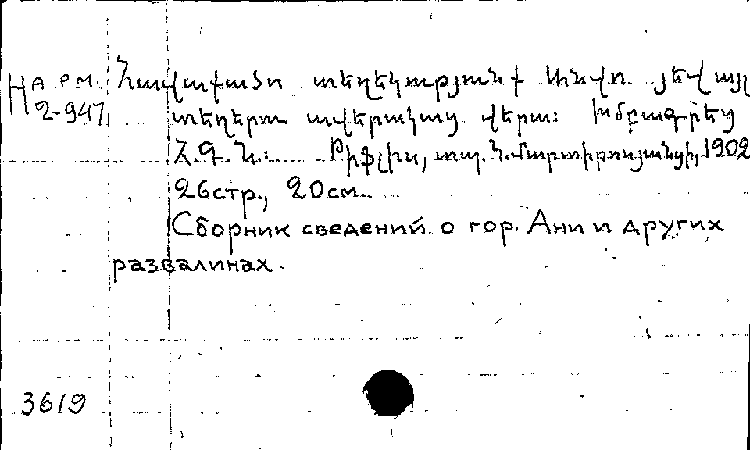 На арм. Հավաքածո տեղեկություննք Անիո յեվ այլ
2-947 տեղերու ավերակաց վերա։ Խմբագրեց
Հ. Գ. Ն. Թիֆլիս, տպ. Ն. Մարտիրոսյանցի, 1902
26стр., 20см.
Сборник сведений о гор. Ани и других
развалинах.
3619